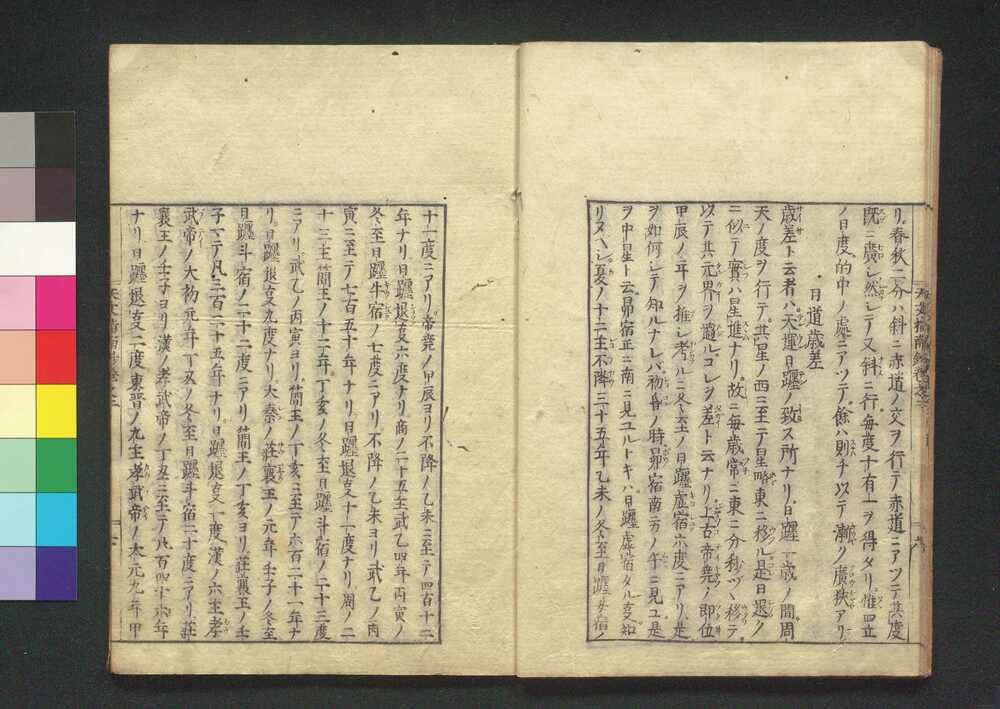 リ春秋二分ハ斜ニ赤道ノ交ヲ行テ赤道ニアツテ其度
既ニ廣シ然シテ又斜ニ行毎度十有一ヲ得タリ惟四立
ノ日度的中ノ處ニアツテ餘ハ則チ以テ漸ク廣狹アリ
日道歳差
歳差ト云者ハ天運日躔ノ致ス所ナリ日躔一歳ノ間周
天ノ度ヲ行テ其星ノ西ニ至テ星略東ニ移ル是日退ク
ニ似テ實ハ星進ナリ故ニ毎歳常ニ東ニ分秒ヅヽ移テ
以テ其元界ヲ過ルコレヲ差ト云ナリ上古帝堯ノ即位
甲辰ノ年ヲ推シ考ルニ冬至ノ日躔虚宿六度ニアリ是
ヲ如何シテ知ルナレバ初昏ノ時昴宿南方ノ午ニ見ユ是
ヲ中星ト云昴宿正ニ南ニ見ユルトキハ日躔虚宿タル支知
リヌヘシ夏ノ十二主不降三十五年乙未ノ冬至日躔女宿ノ
十一度ニアリ帝堯ノ甲辰ヨリ不降ノ乙未ニ至テ四百十二
年ナリ日躔退支六度ナリ商ノ二十五主武乙四年丙寅ノ
冬至日躔牛宿ノ七度ニアリ不降ノ乙未ヨリ武乙ノ丙
寅ニ至テ七百五十年ナリ日躔退支十一度ナリ周ノ二
十三主簡王ノ十二年丁亥ノ冬至日躔斗宿ノ二十三度
ニアリ武乙ノ丙寅ヨリ簡王ノ丁亥ニ至テ六百二十一年ナ
リ日躔退支九度ナリ大秦ノ莊襄王ノ元年壬子ノ冬至
日躔斗宿ノ二十二度ニアリ簡王ノ丁亥ヨリ莊襄王ノ壬
子マテ凡三百二十五年ナリ日躔退支一度漢ノ六主孝
武帝ノ大初元年丁丑ノ冬至日躔斗宿二十度ニアリ莊
襄王ノ壬子ヨリ漢ノ孝武帝ノ丁丑ニ至テ
ナリ日躔退支二度東晋ノ九主孝武帝ノ太元九年甲